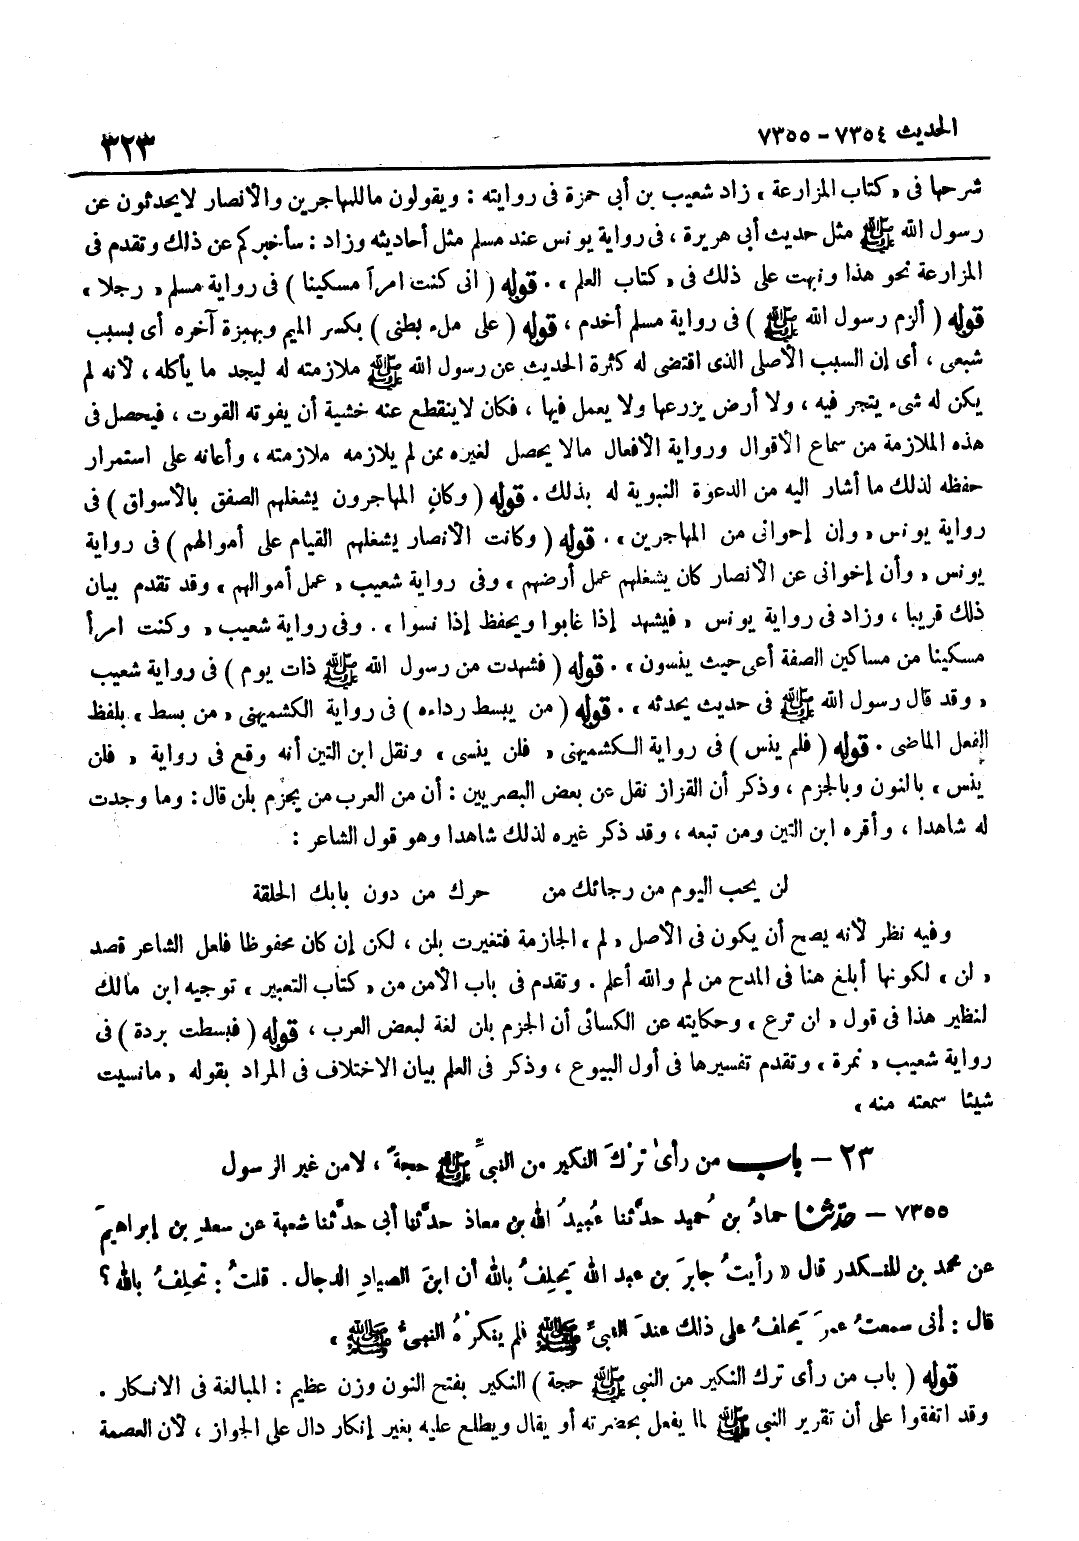 الحديث ٧٣٥٤ - ٧٣٥٥
٣٢٣
شرحها فى « كتاب المزارعة » زاد شعيب بن أبى حمزة فى روايته : ويقولون ماللمهاجرين والأنصار لايحدثون عن
رسول الله ﷺ مثل حديث أبى هريرة ، فى رواية يونس عند مسلم مثل أحاديثه وزاد : سأخبركم عن ذلك وتقدم فى
المزارعة نحو هذا ونبهت على ذلك فى « كتاب العلم » . قوله ( انى كنت امرأ مسكينا ) فى رواية مسلم « رجلا »
قوله ( ألزم رسول الله ﷺ ) فى رواية مسلم أخدم ، قوله ( على ملء بطنى ) بكسر الميم وبهمزة آخره أى بسبب
شبعى ، أى إن السبب الأصلى الذى اقتضى له كثرة الحديث عن رسول الله ﷺ ملازمته له ليجد ما يأكله ، لأنه لم
يكن له شىء يتجر فيه ، ولا أرض يزرعها ولا يعمل فيها ، فكان لاينقطع عنه خشية أن يفوته القوت ، فيحصل فى
هذه الملازمة من سماع الأقوال ورواية الأفعال مالا يحصل لغيره ممن لم يلازمه ملازمته ، وأعانه على استمرار
حفظه لذلك ما أشار اليه من الدعوة النبوية له بذلك . قوله ( وكان المهاجرون يشغلهم الصفق بالأسواق ) فى
رواية يونس « وإن إخوانى من المهاجرين » . قوله ( وكانت الأنصار يشغلهم القيام على أموالهم ) فى رواية
يونس « وأن إخوانى عن الأنصار كان يشغلهم عمل أرضهم » وفى رواية شعيب « عمل أموالهم » وقد تقدم بيان
ذلك قريبا ، وزاد فى رواية يونس « فيشهد إذا غابوا ويحفظ إذا نسوا » . وفى رواية شعيب « وكنت امرأ
مسكينا من مساكين الصفة أعى حيث ينسون » . قوله ( فشهدت من رسول الله ﷺ ذات يوم ) فى رواية شعيب
« وقد قال رسول الله ﷺ فى حديث يحدثه » . قوله ( من يبسط رداءه ) فى رواية الكشميهنى « من بسط » بلفظ
الفعل الماضى . قوله ( فلم ينس ) فى رواية الكشميهنى « فلن ينسى » ونقل ابن التين أنه وقع فى رواية « فلن
ينس » بالنون وبالجزم ، وذكر أن القزاز نقل عن بعض البصريين : أن من العرب من يجزم بلن قال : وما وجدت
له شاهدا ، وأقره ابن التين ومن تبعه ، وقد ذكر غيره لذلك شاهدا وهو قول الشاعر :
لن يحب اليوم من رجائك من     حرك من دون بابك الحلقة
وفيه نظر لأنه يصح أن يكون فى الأصل « لم » الجازمة فتغيرت بلن ، لكن إن كان محفوظا فلعل الشاعر قصد
« لن » لكونها أبلغ هنا فى المدح من لم والله أعلم . وتقدم فى باب الأمن من « كتاب التعبير » توجيه ابن مالك
لنظير هذا فى قول « ان ترع » وحكايته عن الكسائى أن الجزم بلن لغة لبعض العرب ، قوله ( فبسطت بردة ) فى
رواية شعيب « نمرة » وتقدم تفسيرها فى أول البيوع ، وذكر فى العلم بيان الاختلاف فى المراد بقوله « مانسيت
شيئا سمعته منه »
٢٣ - باب من رأى تركَ النكير من النبىِّ ﷺ حجةً ، لامن غير الرسول
٧٣٥٥ - حدّثنا حمادُ بن حُميد حدَّثنا عُبيدُ الله بن معاذ حدَّثنا أبى حدَّثنا شعبة عن سعدِ بن إبراهيمَ
عن محمد بن المنكدر قال « رأيتُ جابرَ بن عبد الله يَحلِفُ بالله أن ابنَ الصيادِ الدجال . قلتُ : تحلِفُ بالله ؟
قال : أنى سمعتُ عمرَ يَحلفُ على ذلك عندَ النبىِّ ﷺ فلم ينكرْهُ النبىُّ ﷺ »
قوله ( باب من رأى ترك النكير من النبى ﷺ حجة ) النكير بفتح النون وزن عظيم : المبالغة فى الانكار .
وقد اتفقوا على أن تقرير النبى ﷺ لما يفعل بحضرته أو يقال ويطلع عليه بغير إنكار دال على الجواز ، لأن العصمة